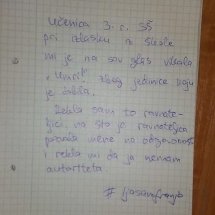 Učenica 3. r. SŠ
pri odlasku iz škole
mi je na sav glas vikala
"Umri!" zbog jedinice koju
je dobila.
Rekla sam to ravnate-
ljici na što je ravnateljica
pozvala mene na odgovornost
i rekla mi da ja nemam
autoriteta.
#